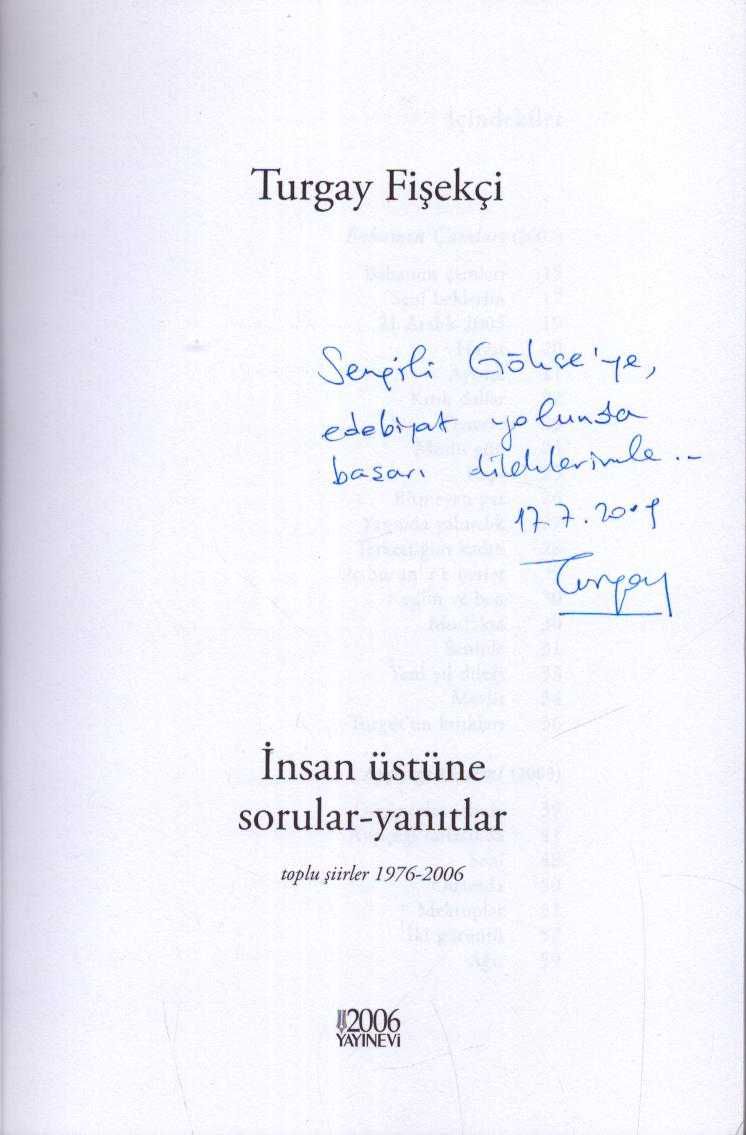 Turgay Fişekçi
Sevgili Gökçe'ye,
edebiyat yolunda
başarı dileklerimle...
17.7.2009
Turgay
İnsan üstüne
sorular-yanıtlar
toplu şiirler 1976-2006
2006
YAYINEVİ